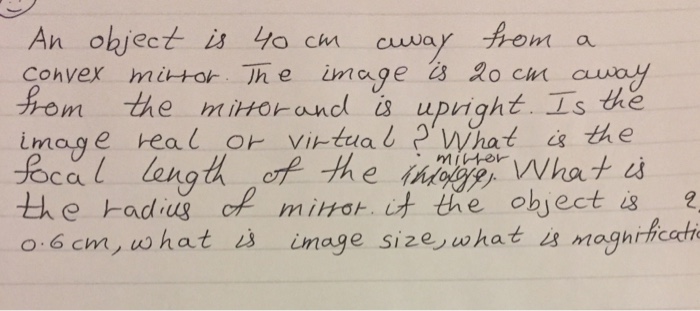 An object is 40 cm away from a
convex mirror. The image is 20 cm away
from the mirror and is upright. Is the
image real or virtual? What is the
focal length of the mirror. What is
the radius of mirror. if the object is
0.6 cm, what is image size, what is magnificatio